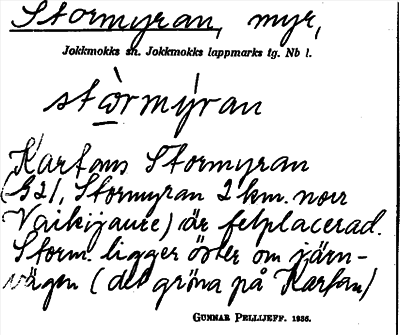 Stormyran, myr,
Jokkmokks sn. Jokkmokks lappmarks tg. Nb l.
stòrmýran
Kartans Stormyran
(G21, Stormyran 2 km. norr
Vaikijaure) är felplacerad.
Storm. ligger öster om järn-
vägen (det gröna på Kartan)
GUNNAR PELLIJEFF. 1956.